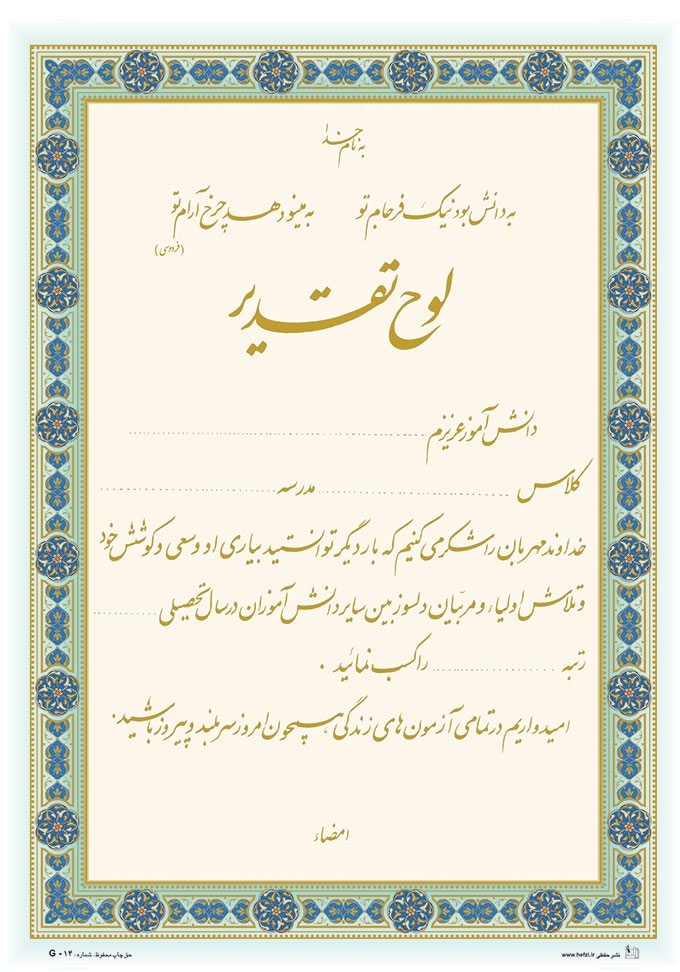 به نام خدا
به دانش بود نیک فرجام تو به مینو دهد چرخ آرام تو
(فردوسی)
لوح تقدیر
دانش آموز عزیزم
کلاس مدرسه
خداوند مهربان را شکر می کنیم که بار دیگر توانستید بیاری او و سعی و کوشش خود
و تلاش اولیاء و مربّیان دلسوز بین سایر دانش آموزان در سال تحصیلی
رتبه را کسب نمائید .
امیدواریم در تمامی آزمون های زندگی همچون امروز سربلند و پیروز باشید.
امضاء
نشر حفظی www.hefzi.ir حق چاپ محفوظ. شماره: G - ۱۴